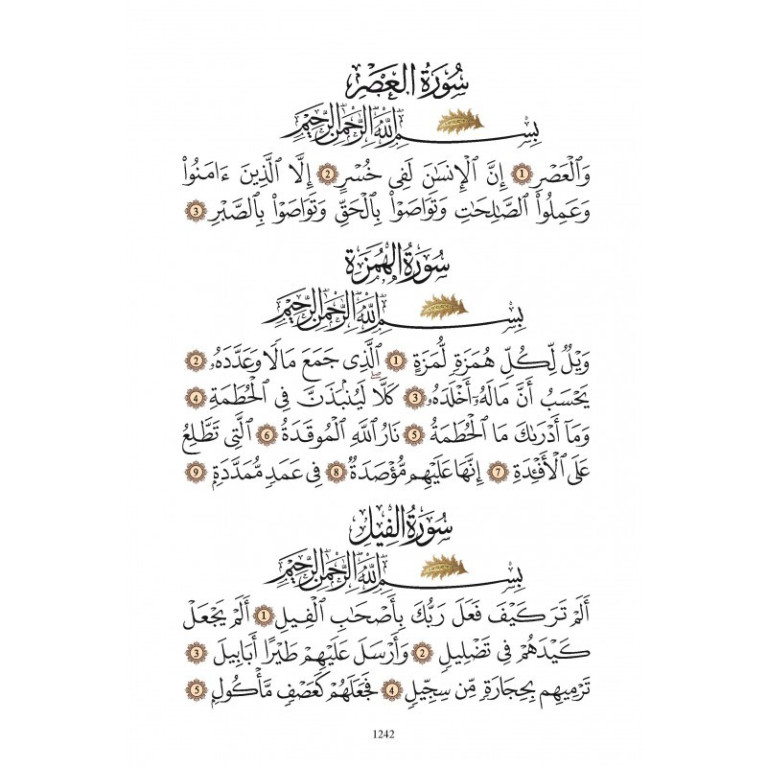 سُورَةُ العَصْرِ
بِسْمِ ٱللَّهِ ٱلرَّحْمَٰنِ ٱلرَّحِيمِ
وَٱلْعَصْرِ 1 إِنَّ ٱلْإِنسَٰنَ لَفِى خُسْرٍ 2 إِلَّا ٱلَّذِينَ ءَامَنُوا۟
وَعَمِلُوا۟ ٱلصَّٰلِحَٰتِ وَتَوَاصَوْا۟ بِٱلْحَقِّ وَتَوَاصَوْا۟ بِٱلصَّبْرِ 3
سُورَةُ الهُمَزَةِ
بِسْمِ ٱللَّهِ ٱلرَّحْمَٰنِ ٱلرَّحِيمِ
وَيْلٌ لِّكُلِّ هُمَزَةٍ لُّمَزَةٍ 1 ٱلَّذِى جَمَعَ مَالًا وَعَدَّدَهُۥ 2
يَحْسَبُ أَنَّ مَالَهُۥٓ أَخْلَدَهُۥ 3 كَلَّا ۖ لَيُنۢبَذَنَّ فِى ٱلْحُطَمَةِ 4
وَمَآ أَدْرَىٰكَ مَا ٱلْحُطَمَةُ 5 نَارُ ٱللَّهِ ٱلْمُوقَدَةُ 6 ٱلَّتِى تَطَّلِعُ
عَلَى ٱلْأَفْـِٔدَةِ 7 إِنَّهَا عَلَيْهِم مُّؤْصَدَةٌ 8 فِى عَمَدٍ مُّمَدَّدَةٍ 9
سُورَةُ الفِيلِ
بِسْمِ ٱللَّهِ ٱلرَّحْمَٰنِ ٱلرَّحِيمِ
أَلَمْ تَرَ كَيْفَ فَعَلَ رَبُّكَ بِأَصْحَٰبِ ٱلْفِيلِ 1 أَلَمْ يَجْعَلْ
كَيْدَهُمْ فِى تَضْلِيلٍ 2 وَأَرْسَلَ عَلَيْهِمْ طَيْرًا أَبَابِيلَ 3
تَرْمِيهِم بِحِجَارَةٍ مِّن سِجِّيلٍ 4 فَجَعَلَهُمْ كَعَصْفٍ مَّأْكُولٍۭ 5
1242